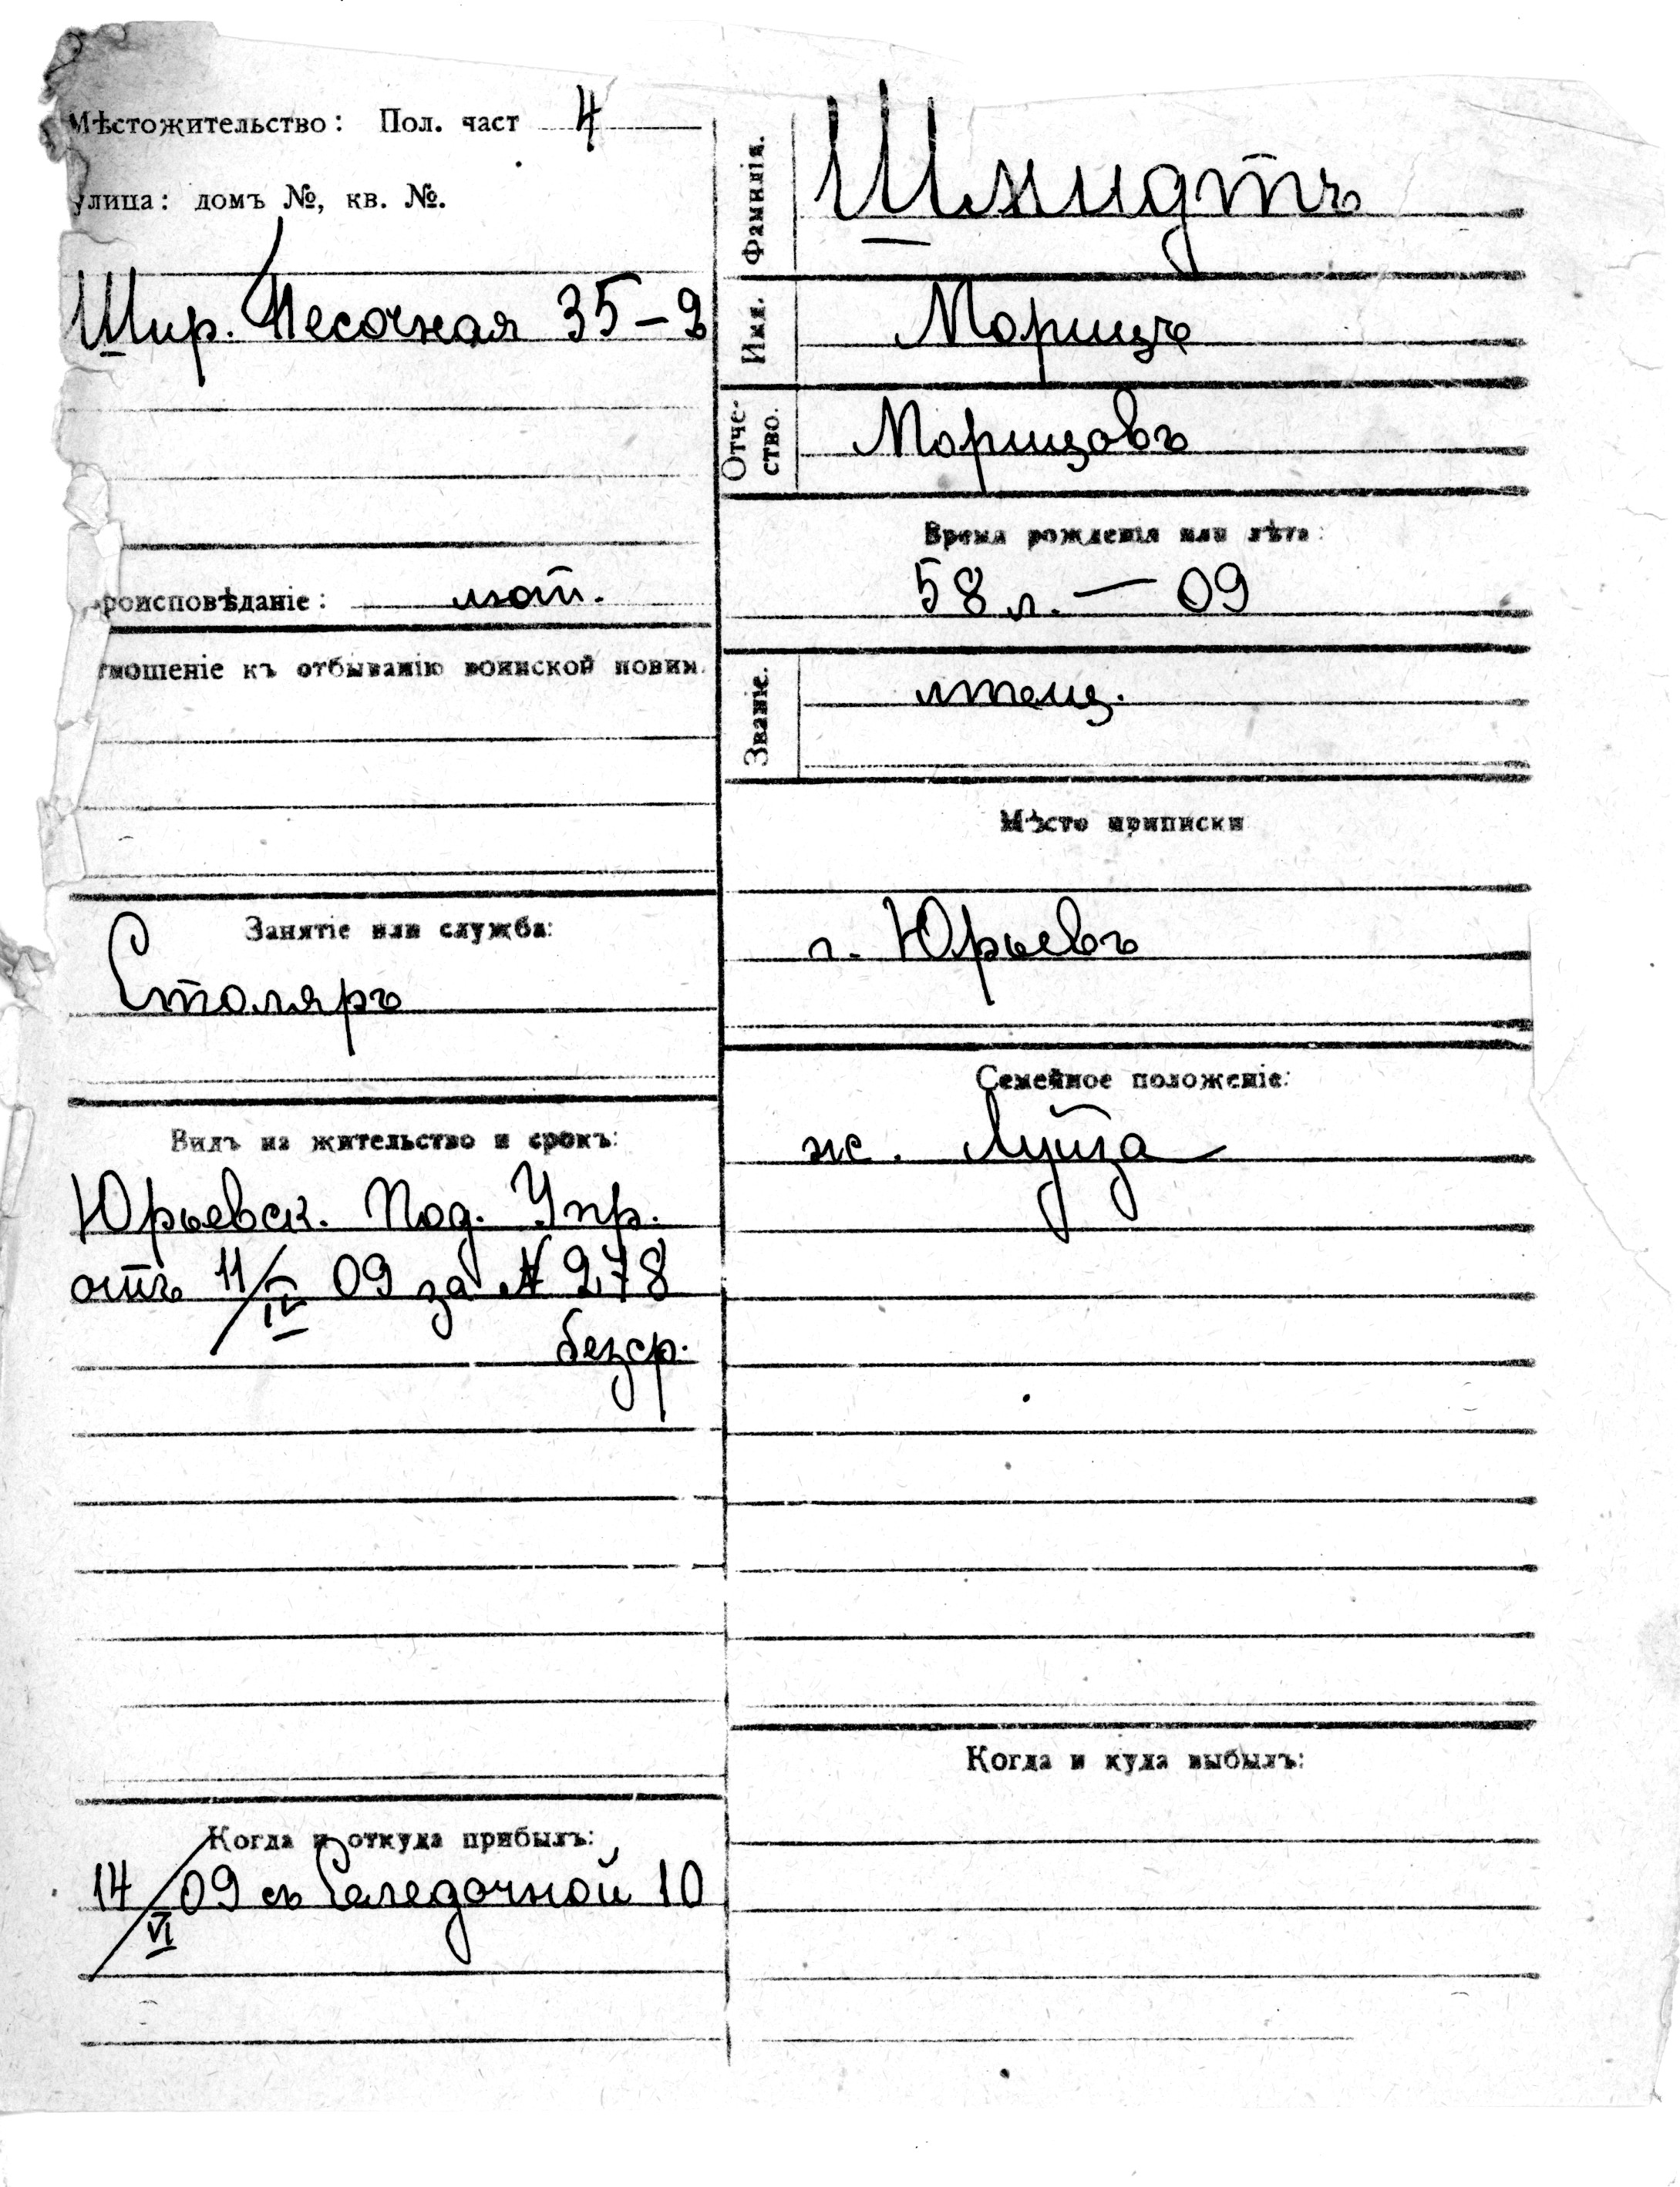 Мѣстожительство: Пол. част 4
улица: домъ №, кв. №.
Шир. Песочная 35-2
роисповѣданіе: лют.
тношеніе къ отбыванію воинской повин.
Занятіе или служба:
Столяръ
Видъ на жительство и срокъ:
Юрьевск. Под. Упр.
отъ 11/IV 09 за № 278
безср.
Когда и откуда прибылъ:
14/VI 09 съ Селедочной 10
Фамилія.
Шмидтъ
Имя.
Морицъ
Отче-
ство.
Морицовъ
Время рожденія или лѣта:
58 л. — 09
Званіе.
мѣщ.
Мѣсто приписки
г. Юрьевъ
Семейное положеніе:
ж. Луиза
Когда и куда выбылъ: